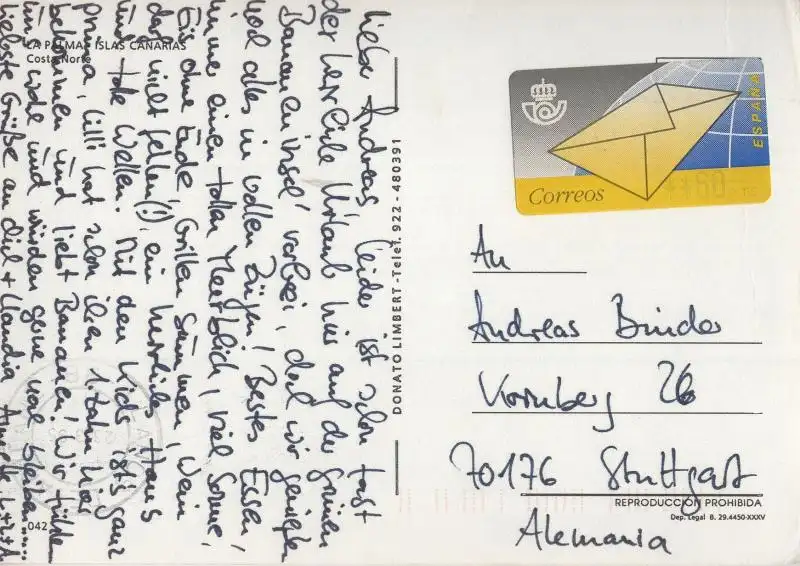 LA PALMA ISLAS CANARIAS
Costa Norte
Lieber Andreas, leider ist schon fast
der herrliche Urlaub hier auf der grünen
Bananeninsel vorbei, doch wir genießen
noch alles in vollen Zügen! Bestes Essen,
immer einen tollen Meerblick, viel Sonne,
Eis ohne Ende, Grillen summen, Wein
darf nicht fehlen (!), ein herrliches Haus
und tolle Wellen. Mit den Kids ist's ganz
prima, Lilli hat schon ihren 1. Zahn hier
bekommen und liebt Bananen! Wir fühlen
uns wohl und würden gerne noch bleiben.....
Liebste Grüße an dich + Claudia
DONATO LIMBERT - Telef. 922 - 480391
042
Correos
ESPAÑA
**60 PTS
An
Andreas Binder
Vornberg 26
70176 Stuttgart
Alemania
REPRODUCCIÓN PROHIBIDA
Dep. Legal B. 29.4450-XXXV